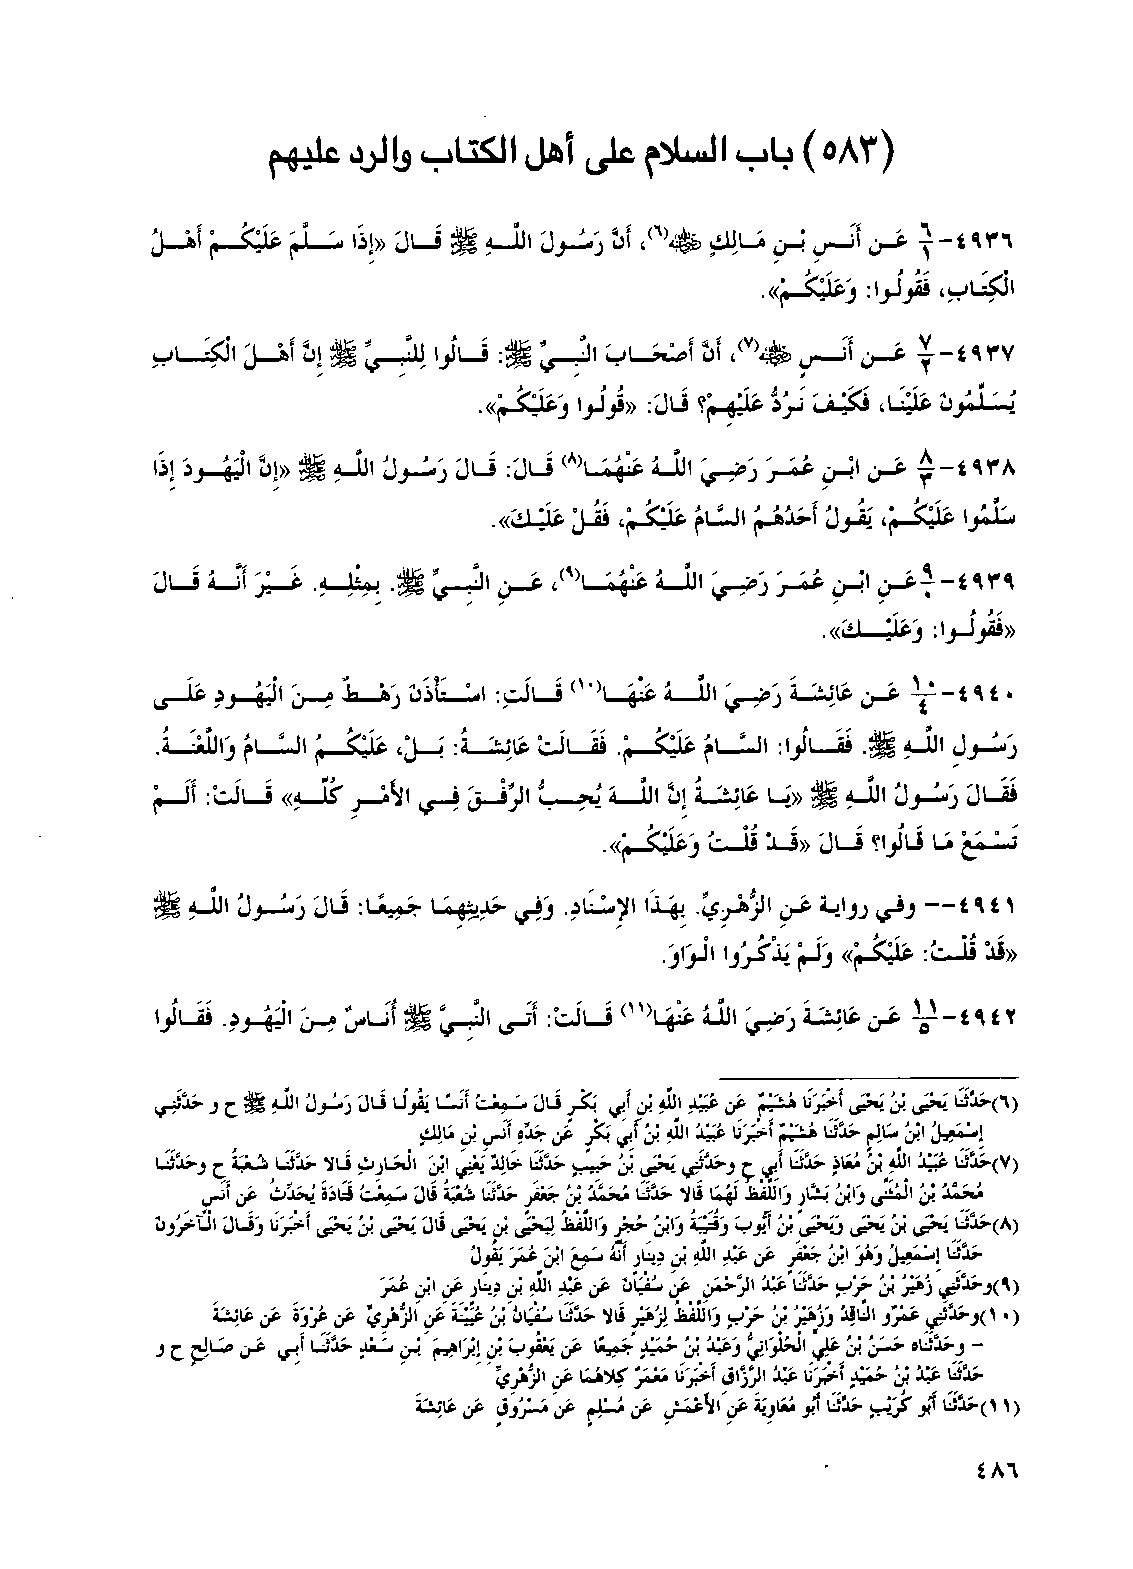 (٥٨٣) باب السلام على أهل الكتاب والرد عليهم
٤٩٣٦-٦/١ عَن أَنَسِ بْنِ مَالِكٍ ﷺ(٦)، أَنَّ رَسُولَ اللَّهِ ﷺ قَالَ «إِذَا سَلَّمَ عَلَيْكُمْ أَهْلُ
الْكِتَابِ، فَقُولُوا: وَعَلَيْكُمْ».
٤٩٣٧-٧/٢ عَن أَنَسٍ ﷺ(٧)، أَنَّ أَصْحَابَ النَّبِيِّ ﷺ: قَالُوا لِلنَّبِيِّ ﷺ إِنَّ أَهْلَ الْكِتَابِ
يُسَلِّمُونَ عَلَيْنَا، فَكَيْفَ نَرُدُّ عَلَيْهِمْ؟ قَالَ: «قُولُوا وَعَلَيْكُمْ».
٤٩٣٨-٨/٣ عَن ابْنِ عُمَرَ رَضِيَ اللَّهُ عَنْهُمَا(٨) قَالَ: قَالَ رَسُولُ اللَّهِ ﷺ «إِنَّ الْيَهُودَ إِذَا
سَلَّمُوا عَلَيْكُمْ، يَقُولُ أَحَدُهُمُ السَّامُ عَلَيْكُمْ، فَقُلْ عَلَيْكَ».
٤٩٣٩-٩/٠ عَنِ ابْنِ عُمَرَ رَضِيَ اللَّهُ عَنْهُمَا(٩)، عَنِ النَّبِيِّ ﷺ. بِمِثْلِهِ. غَيْرَ أَنَّهُ قَالَ
«فَقُولُوا: وَعَلَيْكَ».
٤٩٤٠-١٠/٤ عَن عَائِشَةَ رَضِيَ اللَّهُ عَنْهَا(١٠) قَالَتِ: اسْتَأْذَنَ رَهْطٌ مِنَ الْيَهُودِ عَلَى
رَسُولِ اللَّهِ ﷺ. فَقَالُوا: السَّامُ عَلَيْكُمْ. فَقَالَتْ عَائِشَةُ: بَلْ، عَلَيْكُمُ السَّامُ وَاللَّعْنَةُ.
فَقَالَ رَسُولُ اللَّهِ ﷺ «يَا عَائِشَةُ إِنَّ اللَّهَ يُحِبُّ الرِّفْقَ فِي الأَمْرِ كُلِّهِ» قَالَتْ: أَلَمْ
تَسْمَعْ مَا قَالُوا؟ قَالَ «قَدْ قُلْتُ وَعَلَيْكُمْ».
٤٩٤١-- وفي رواية عَنِ الزُّهْرِيِّ. بِهَذَا الإِسْنَادِ. وَفِي حَدِيثِهِمَا جَمِيعًا: قَالَ رَسُولُ اللَّهِ ﷺ
«قَدْ قُلْتُ: عَلَيْكُمْ» وَلَمْ يَذْكُرُوا الْوَاوَ.
٤٩٤٢-١١/٥ عَن عَائِشَةَ رَضِيَ اللَّهُ عَنْهَا(١١) قَالَتْ: أَتَى النَّبِيَّ ﷺ أُنَاسٌ مِنَ الْيَهُودِ. فَقَالُوا
(٦)حَدَّثَنَا يَحْيَى بْنُ يَحْيَى أَخْبَرَنَا هُشَيْمٌ عَن عُبَيْدِ اللَّهِ بْنِ أَبِي بَكْرٍ قَالَ سَمِعْتُ أَنَسًا يَقُولُا قَالَ رَسُولُ اللَّهِ ﷺ ح و حَدَّثَنِي
إِسْمَعِيلُ ابْنُ سَالِمٍ حَدَّثَنَا هُشَيْمٌ أَخْبَرَنَا عُبَيْدُ اللَّهِ بْنُ أَبِي بَكْرٍ عَن جَدِّهِ أَنَسِ بْنِ مَالِكٍ
(٧)حَدَّثَنَا عُبَيْدُ اللَّهِ بْنُ مُعَاذٍ حَدَّثَنَا أَبِي ح وحَدَّثَنِي يَحْيَى بْنُ حَبِيبٍ حَدَّثَنَا خَالِدٌ يَعْنِي ابْنَ الْحَارِثِ قَالا حَدَّثَنَا شُعْبَةُ ح وحَدَّثَنَا
مُحَمَّدُ بْنُ الْمُثَنَّى وَابْنُ بَشَّارٍ وَاللَّفْظُ لَهُمَا قَالا حَدَّثَنَا مُحَمَّدُ بْنُ جَعْفَرٍ حَدَّثَنَا شُعْبَةُ قَالَ سَمِعْتُ قَتَادَةَ يُحَدِّثُ عَن أَنَسٍ
(٨)حَدَّثَنَا يَحْيَى بْنُ يَحْيَى وَيَحْيَى بْنُ أَيُّوبَ وَقُتَيْبَةُ وَابْنُ حُجْرٍ وَاللَّفْظُ لِيَحْيَى بْنِ يَحْيَى قَالَ يَحْيَى بْنُ يَحْيَى أَخْبَرَنَا وَقَالَ الْآخَرُونَ
حَدَّثَنَا إِسْمَعِيلُ وَهُوَ ابْنُ جَعْفَرٍ عَن عَبْدِ اللَّهِ بْنِ دِينَارٍ أَنَّهُ سَمِعَ ابْنَ عُمَرَ يَقُولُ
(٩)وحَدَّثَنِي زُهَيْرُ بْنُ حَرْبٍ حَدَّثَنَا عَبْدُ الرَّحْمَنِ عَن سُفْيَانَ عَن عَبْدِ اللَّهِ بْنِ دِينَارٍ عَنِ ابْنِ عُمَرَ
(١٠)وحَدَّثَنِي عَمْرٌو النَّاقِدُ وَزُهَيْرُ بْنُ حَرْبٍ وَاللَّفْظُ لِزُهَيْرٍ قَالا حَدَّثَنَا سُفْيَانُ بْنُ عُيَيْنَةَ عَنِ الزُّهْرِيِّ عَن عُرْوَةَ عَن عَائِشَةَ
- وحَدَّثَنَاه حَسَنُ بْنُ عَلِيٍّ الْحُلْوَانِيُّ وَعَبْدُ بْنُ حُمَيْدٍ جَمِيعًا عَن يَعْقُوبَ بْنِ إِبْرَاهِيمَ بْنِ سَعْدٍ حَدَّثَنَا أَبِي عَن صَالِحٍ ح و
حَدَّثَنَا عَبْدُ بْنُ حُمَيْدٍ أَخْبَرَنَا عَبْدُ الرَّزَّاقِ أَخْبَرَنَا مَعْمَرٌ كِلاهُمَا عَنِ الزُّهْرِيِّ
(١١)حَدَّثَنَا أَبُو كُرَيْبٍ حَدَّثَنَا أَبُو مُعَاوِيَةَ عَنِ الأَعْمَشِ عَن مُسْلِمٍ عَن مَسْرُوقٍ عَن عَائِشَةَ
٤٨٦